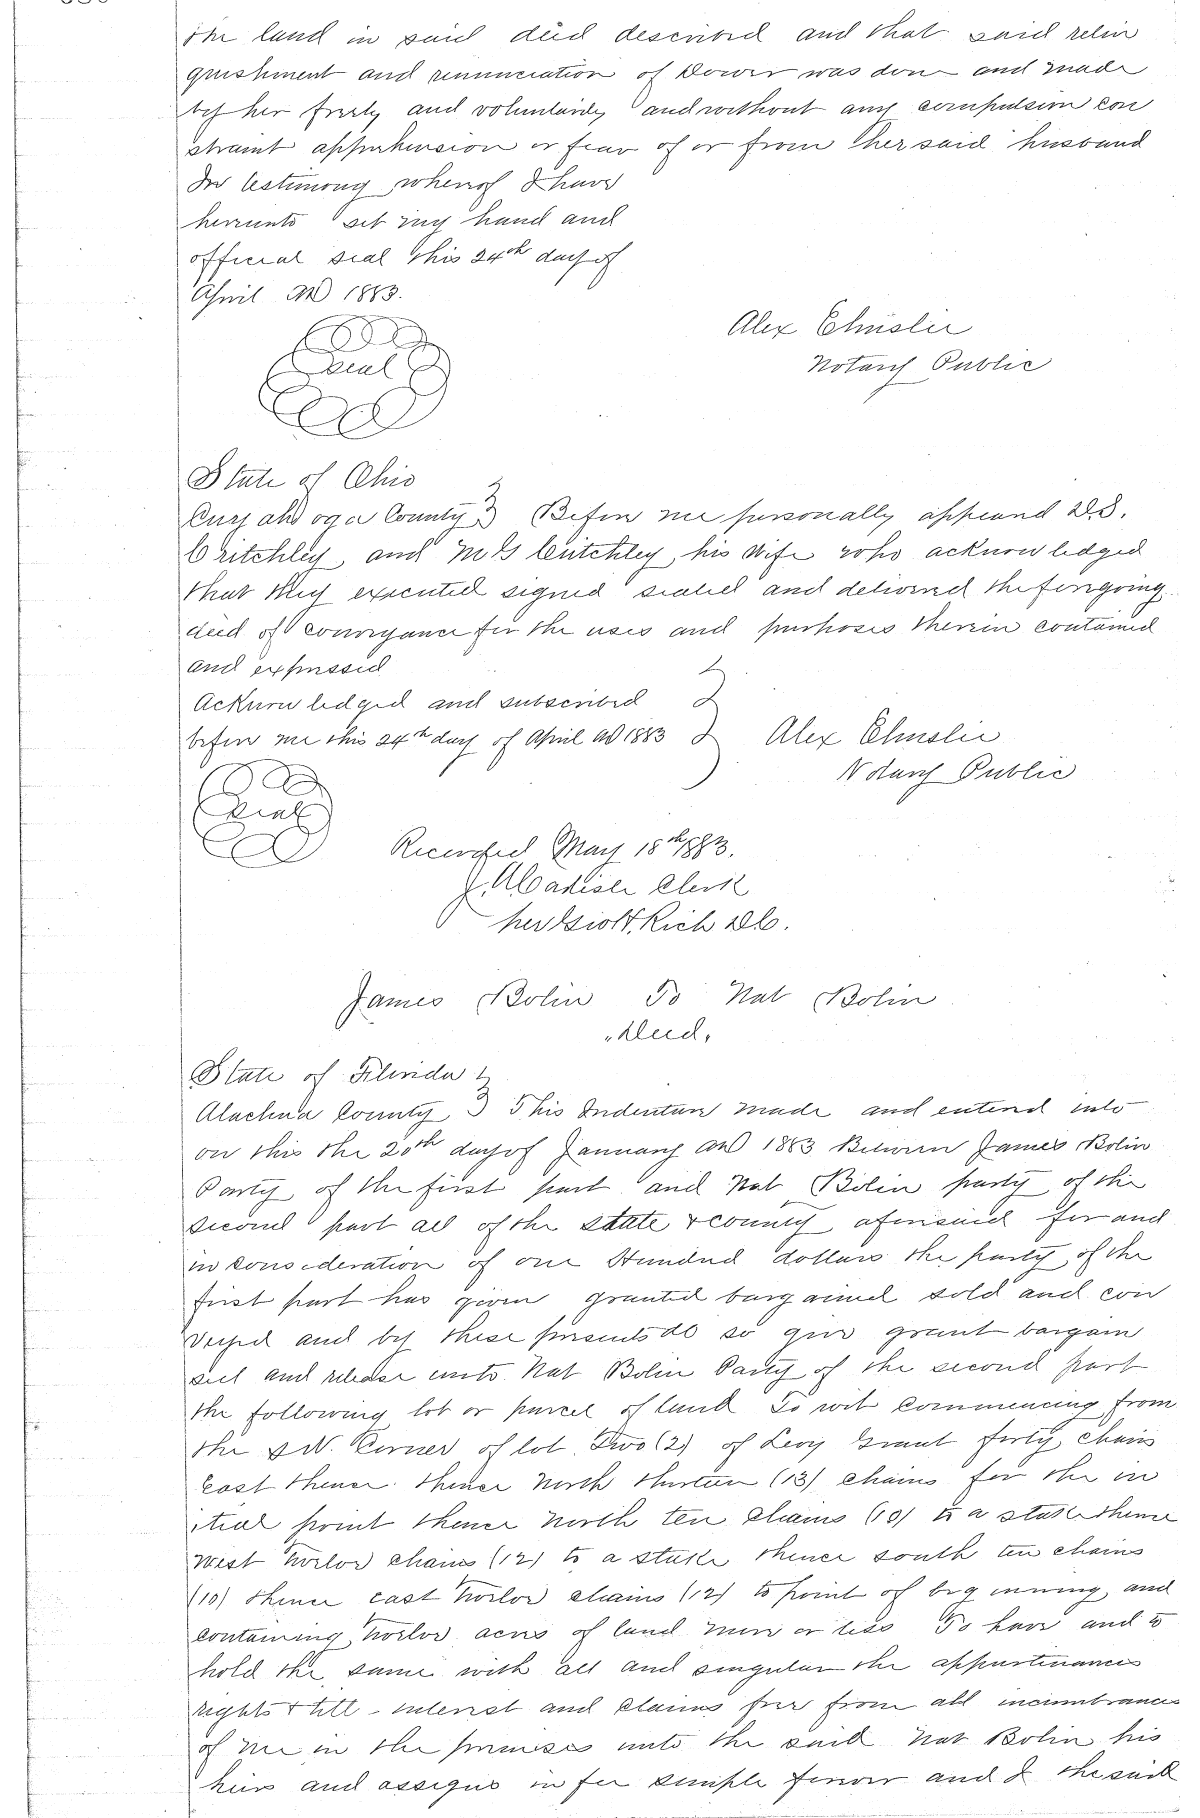 the land in said deed described and that said relin
quishment and renunciation of Dower was done and made
by her freely and voluntarily and without any compulsion con
straint apprehension or fear of or from her said husband
In testimony whereof I have
hereunto set my hand and
official seal this 24th day of
April AD 1883.
Alex
Notary Public
Seal
State of Ohio
Cuyahoga County } Before me personally appeared
Critchley and Critchley his wife who acknowledged
that they executed signed sealed and delivered the foregoing
deed of conveyance for the uses and purposes therein contained
and expressed
Acknowledged and subscribed
before me this 24th day of April AD 1883 } Alex
Notary Public
Seal
Recorded May 18th 1883.
J. A. Carlisle Clerk
per Rich DC.
James Bolin To Nat Bolin
"Deed,
State of Florida
Alachua County } This Indenture made and entered into
on this the 20th day of January AD 1883 Between James Bolin
Party of the first part and Nat Bolin party of the
second part all of the state & county aforesaid for and
in consideration of one Hundred dollars the party of the
first part has given granted bargained sold and con
veyed and by these presents do so give grant bargain
sell and release unto Nat Bolin Party of the second part
the following lot or parcel of land To wit Commencing from
the S W. Corner of lot Two (2) of Levy Grant forty chains
East thence thence North thirteen (13) chains for the in
itial point thence North ten chains (10) to a stake thence
West twelve chains (12) to a stake thence south ten chains
(10) thence east twelve chains (12) to point of beginning and
containing twelve acres of land more or less To have and to
hold the same with all and singular the appurtinances
rights & title interest and claims free from all incumbrances
of me in the premises unto the said Nat Bolin his
heirs and assigns in fee simple forever and I the said